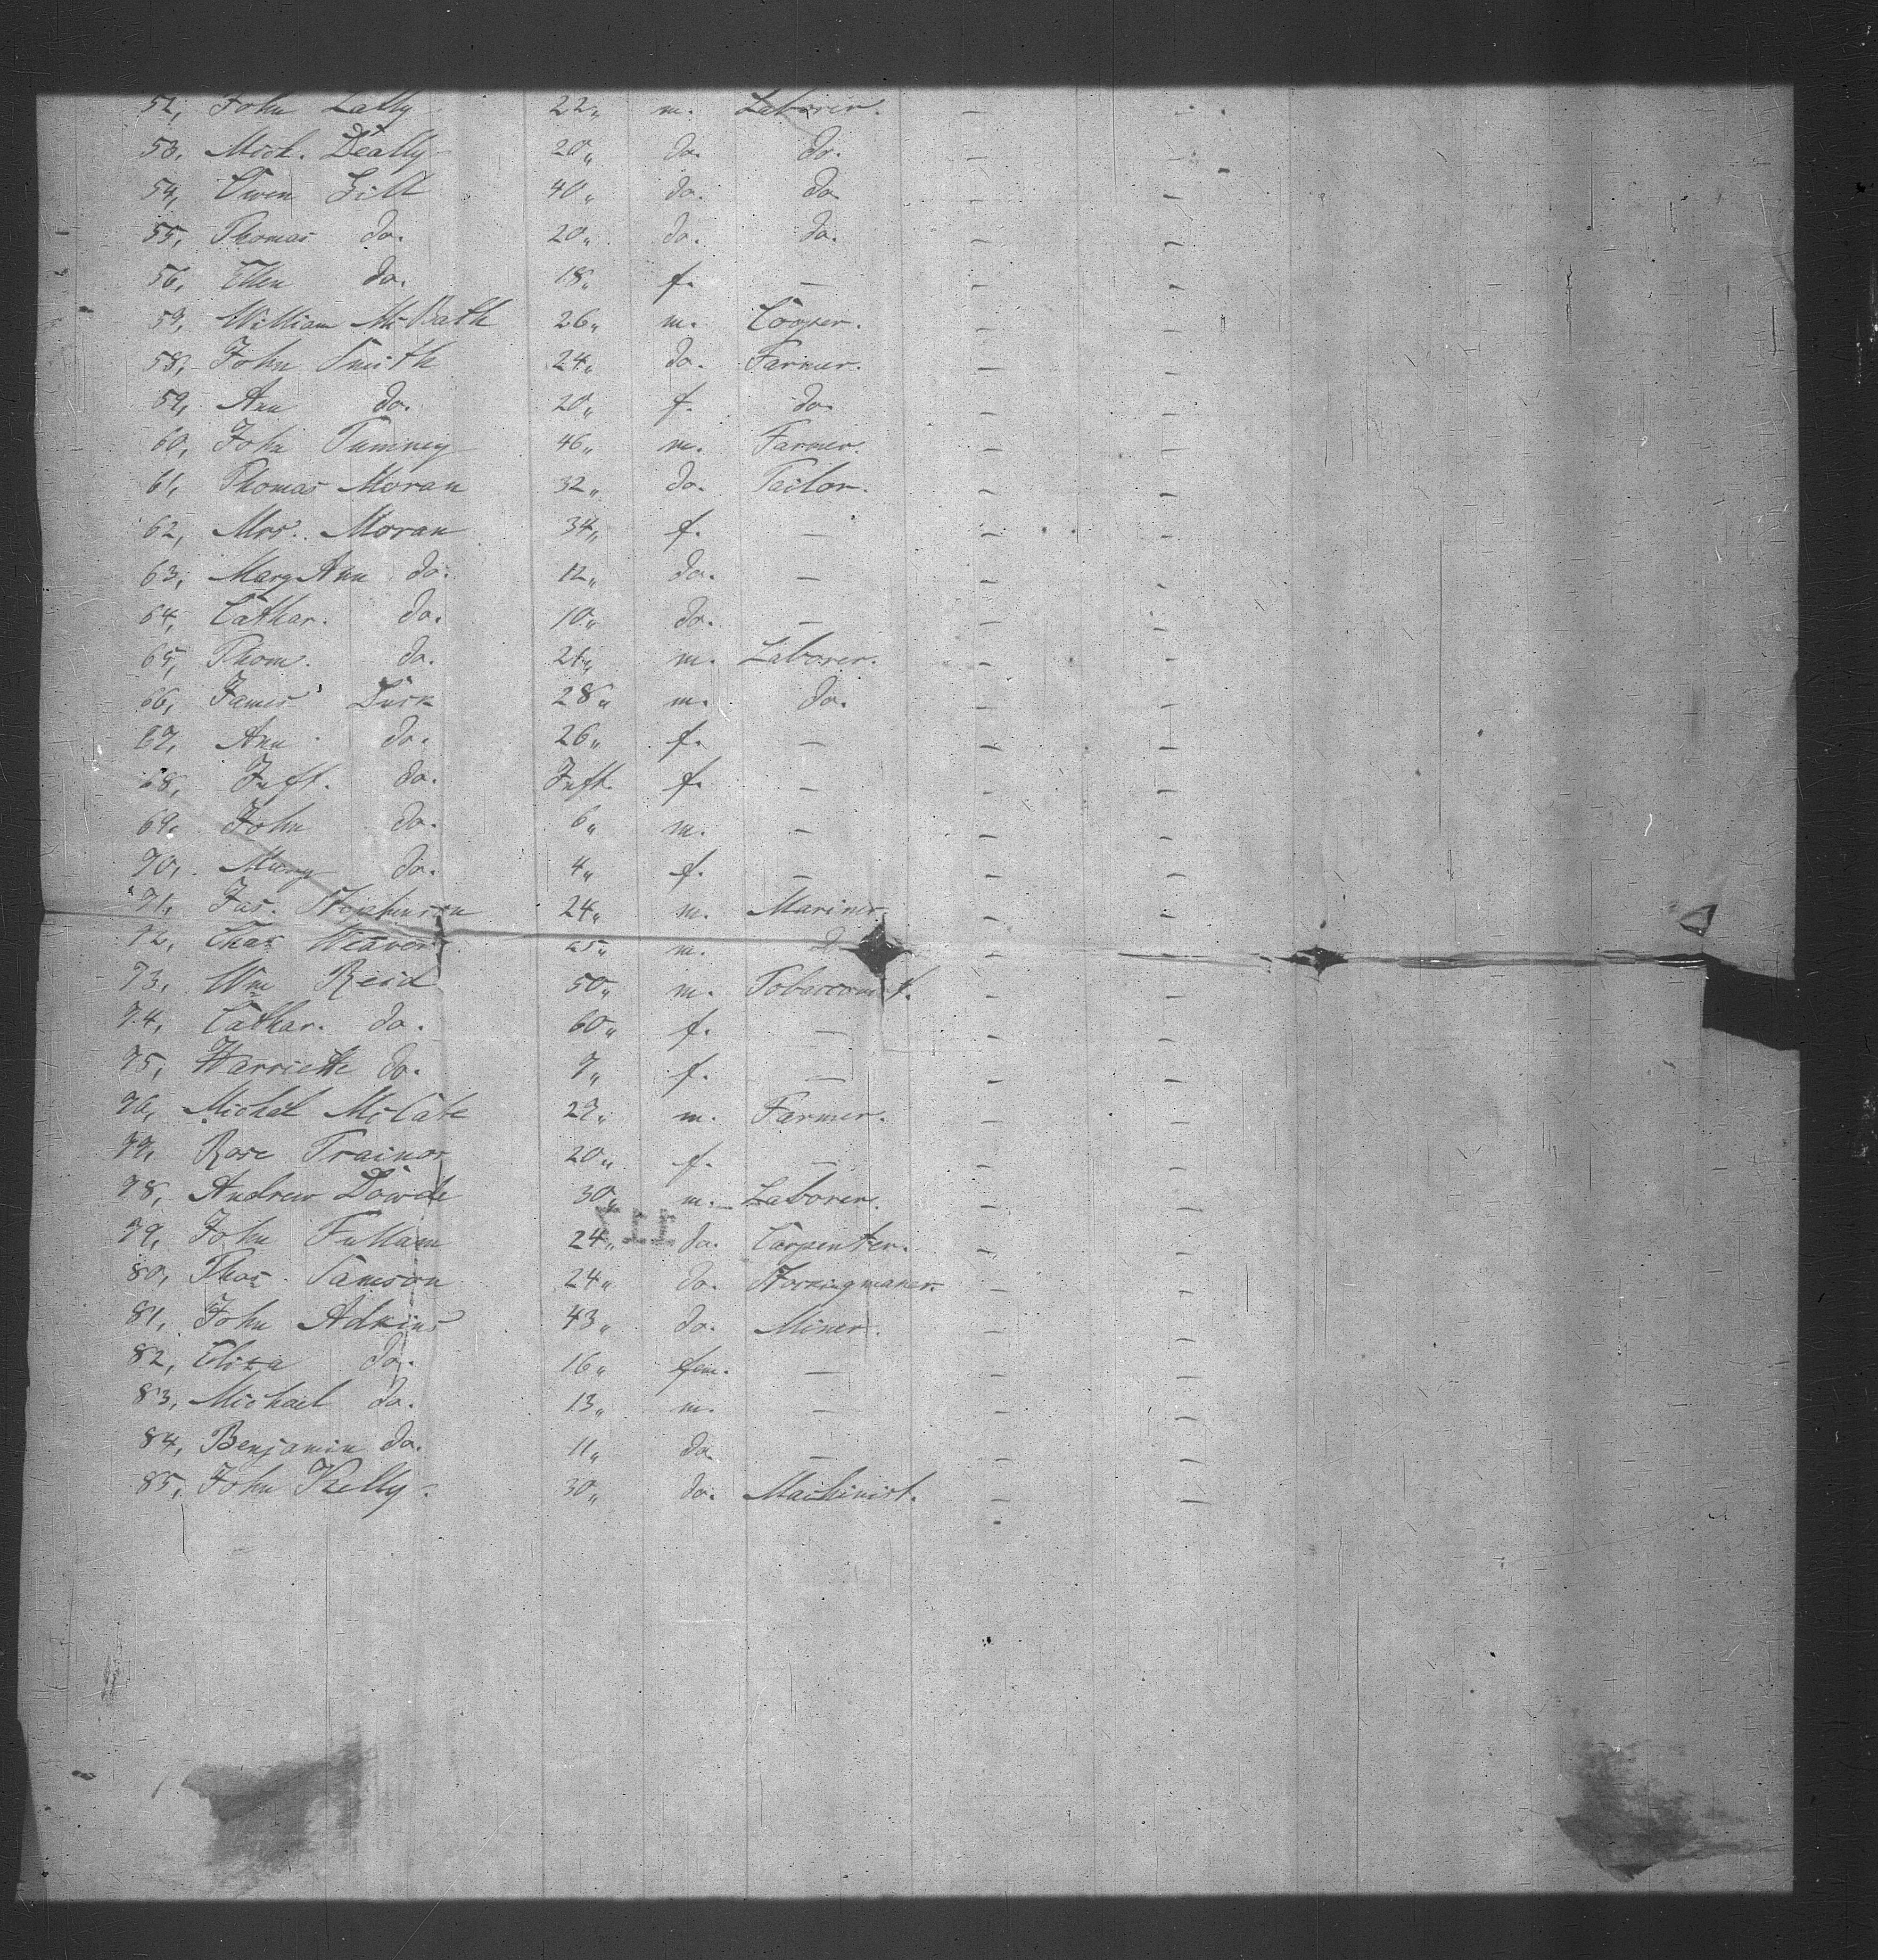 52, John Lally 22,, m. Laborer. — —
53, Mich. Deally 20,, do. do. — —
54, Owen Gill 40,, do. do — —
55, Thomas do. 20,, do. do. — —
56, Ellen do. 18,, f. — — —
57, William McBath 26,, m. Cooper. — —
58, John Smith 24,, do. Farmer. — —
59, Ann do. 20,, f. do — —
60, John Tumney 46,, m. Farmer. — —
61, Thomas Moran 32,, do. Tailor. — —
62, Mrs. Moran 34,, f. — — —
63, Mary Ann do. 12,, do. — — —
64, Cathar. do. 10,, do. — — —
65, Thom. do. 21,, m. Laborer. — —
66, James Lusk 28,, m. do. — —
67, Ann do. 26,, f. — — —
68, Inft. do. Inft. f. — — —
69, John do. 6,, m. — — —
70, Mary do. 4,, f. — — —
71, Jas. Stephenson 24,, m. Mariner — —
72, Chas Weaver 25,, m. — —
73, Wm Reid 50,, m. Tobacconist. — —
74, Cathar. do. 60,, f. — — —
75, Harriette do. 7,, f. — — —
76, Michel McCabe 27,, m. Farmer. — —
77, Rose Trainor 20,, f. — — —
78, Andrew Dowde 30,, m. Laborer. — —
79, John Fullam 24,, do. Carpenter. — —
80, Thos. Samson 24,, do. Stockingmaker. — —
81, John Adkins 43,, do. Miner. — —
82, Eliza do. 16,, fem. — — —
83, Michael do. 13,, m. — — —
84, Benjamin do. 11,, do — — —
85, John Kelly. 30,, do. Machinist. — —